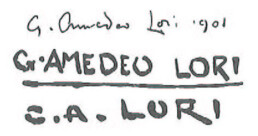 G. Amedeo Lori 1901
G. AMEDEO LORI
G. A. LORI